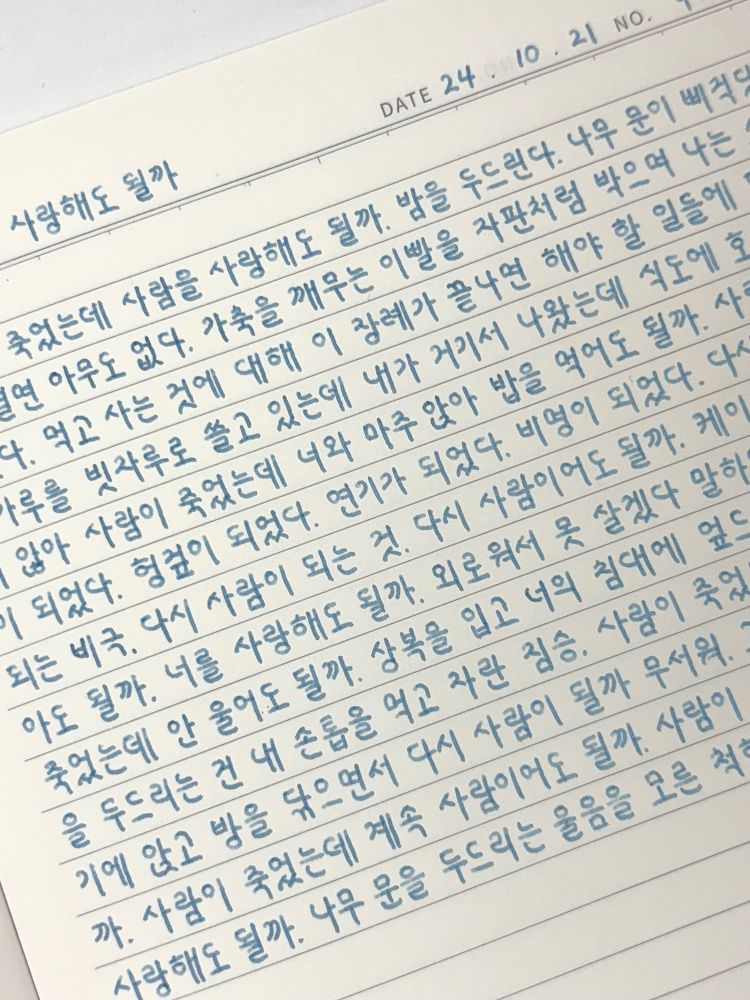 DATE 24 . 10 . 21 NO.
사랑해도 될까
죽었는데 사람을 사랑해도 될까. 밤을 두드린다. 나무 문이 삐걱댔
열면 아무도 없다. 가축을 깨무는 이빨을 자판처럼 박으며 나는
다. 먹고 사는 것에 대해 이 장례가 끝나면 해야 할 일들에
가루를 빗자루로 쓸고 있는데 내가 거기서 나왔는데 식도에 호
앉아 사람이 죽었는데 너와 마주 앉아 밥을 먹어도 될까. 사
이 되었다. 헝겊이 되었다. 연기가 되었다. 비명이 되었다. 다시
되는 비극. 다시 사람이 되는 것. 다시 사람이어도 될까. 케이
아도 될까. 너를 사랑해도 될까. 외로워서 못 살겠다 말하
죽었는데 안 울어도 될까. 상복을 입고 너의 침대에 엎드
을 두드리는 건 내 손톱을 먹고 자란 짐승. 사람이 죽었
기에 앉고 방을 닦으면서 다시 사람이 될까 무서워.
까. 사람이 죽었는데 계속 사람이어도 될까. 사람이
사랑해도 될까. 나무 문을 두드리는 울음을 모른 척